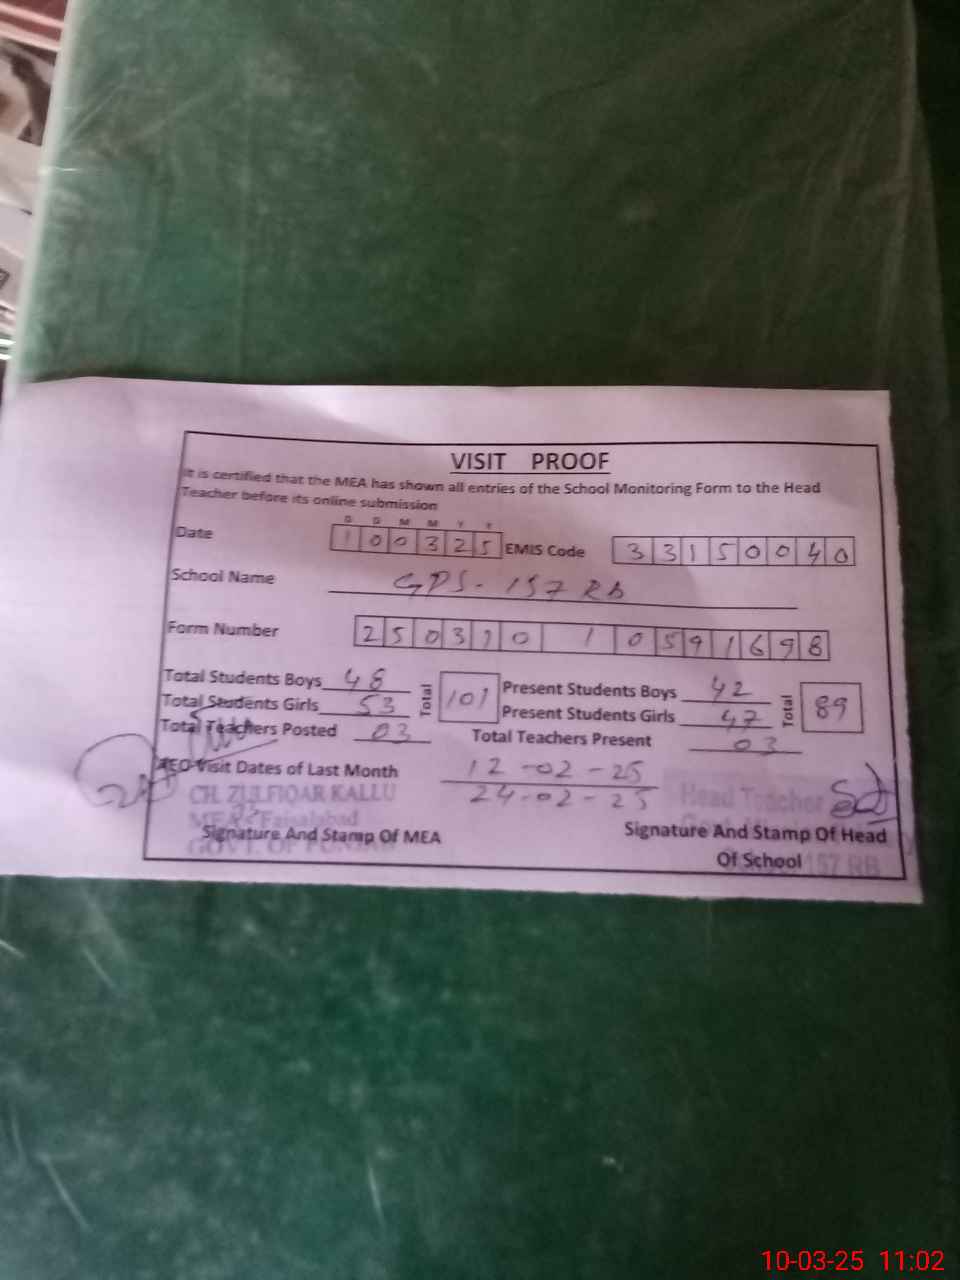 VISIT PROOF
It is certified that the MEA has shown all entries of the School Monitoring Form to the Head
Teacher before its online submission
D D M M Y Y
Date 100325 EMIS Code 33150040
School Name GPS-157 RB
Form Number 250310 1 0591698
Total Students Boys 48 Total 101 Present Students Boys 42 Total 89
Total Students Girls 53 Present Students Girls 47
Total Teachers Posted 03 Total Teachers Present 03
AEO Visit Dates of Last Month 12-02-25
24-02-25
CH. ZULFIQAR KALLU
MEA Faisalabad
GOVT. OF PUNJAB
Signature And Stamp Of MEA
Head Teacher
157 RB
Signature And Stamp Of Head
Of School
10-03-25 11:02